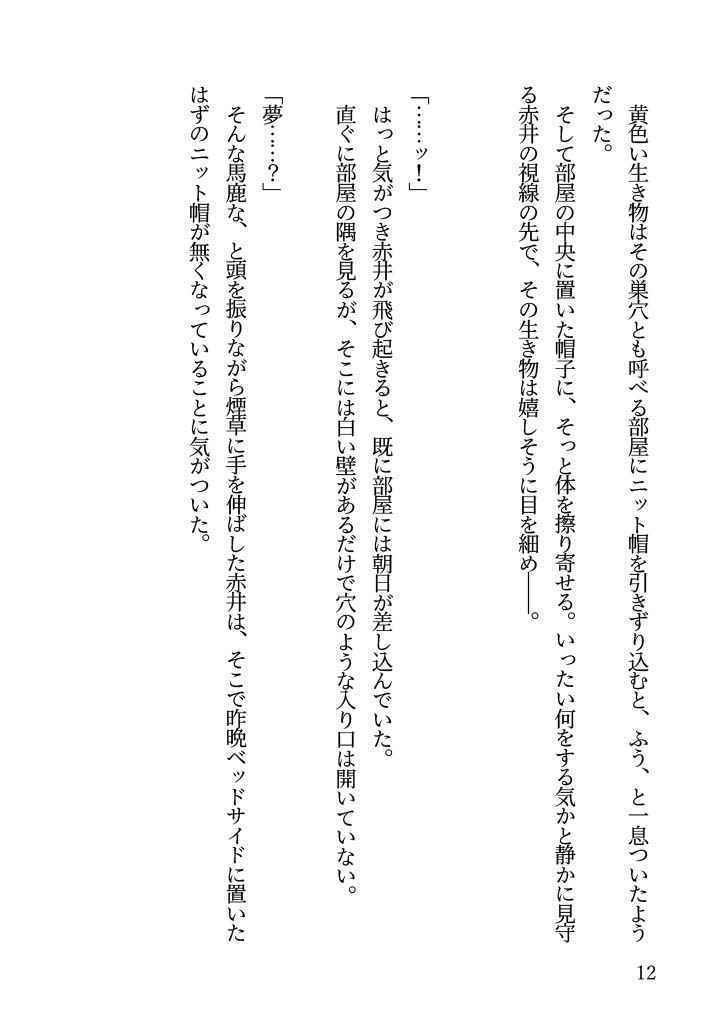 黄色い生き物はその巣穴とも呼べる部屋にニット帽を引きずり込むと、ふう、と一息ついたよう
だった。
そして部屋の中央に置いた帽子に、そっと体を擦り寄せる。いったい何をする気かと静かに見守
る赤井の視線の先で、その生き物は嬉しそうに目を細め――。
「……ッ！」
はっと気がつき赤井が飛び起きると、既に部屋には朝日が差し込んでいた。
直ぐに部屋の隅を見るが、そこには白い壁があるだけで穴のような入り口は開いていない。
「夢……？」
そんな馬鹿な、と頭を振りながら煙草に手を伸ばした赤井は、そこで昨晩ベッドサイドに置いた
はずのニット帽が無くなっていることに気がついた。
12